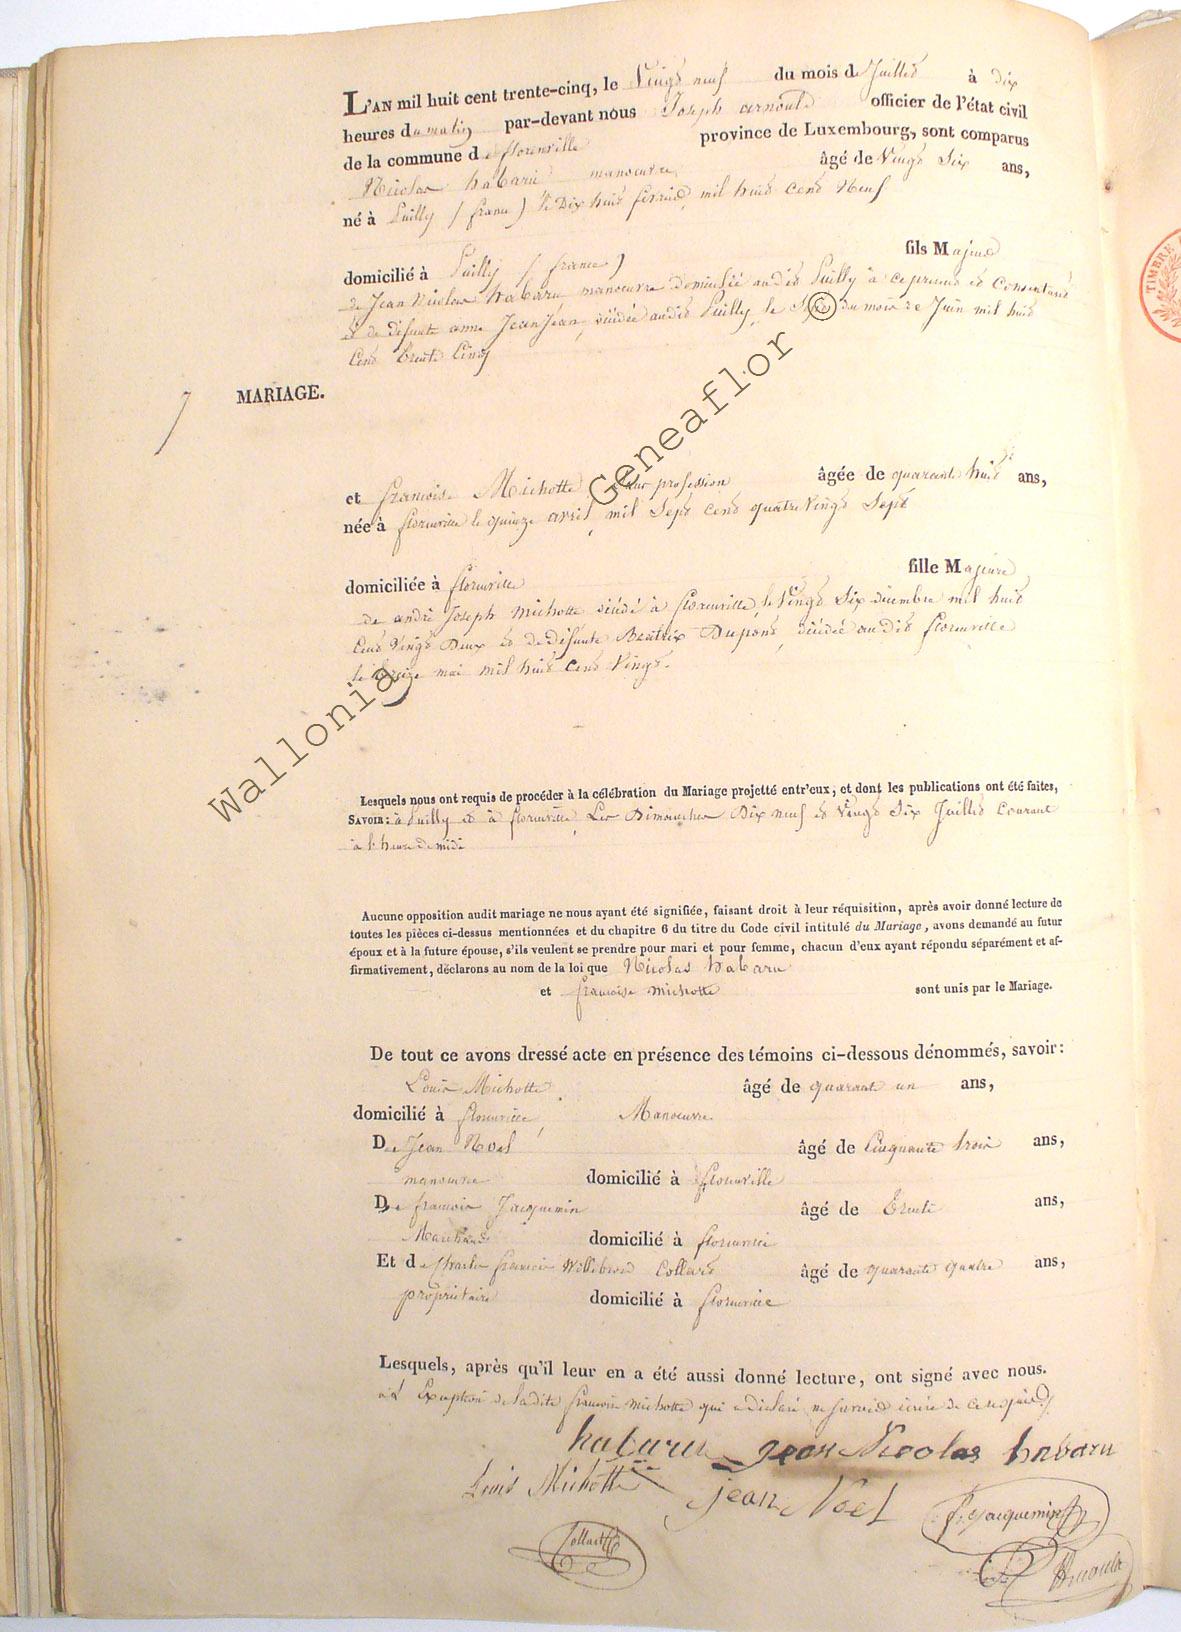 L'AN mil huit cent trente-cinq, le Vingt neuf du mois de Juillet à dix
heures du matin par-devant nous Joseph arnould officier de l'état civil
de la commune de florenville province de Luxembourg, sont comparus
Nicolas habaru manoeuvre âgé de Vingt Six ans,
né à Puilly (france) le Dix huit fevrier mil huit cent Neuf
domicilié à Puilly (france) fils Majeur
de Jean Nicolas habaru manoeuvre domicilié audit Puilly à ce present et Consentant
et de defunte anne JeanJean, décédée audit Puilly, le Sept du mois de Juin mil huit
Cent trente Cinq
7 MARIAGE.
et francoise Michotte sans profession âgée de quarante huit ans,
née à florenville le quinze avril, mil Sept cent quatre Vingt Sept
domiciliée à florenville fille Majeure
de andré Joseph Michotte décédé à florenville, le Vingt Six decembre mil huit
Cent Vingt Deux et de Defunte Beatrix Dupont, décédée audit florenville
le treize mai mil huit cent Vingt.
Lesquels nous ont requis de procéder à la célébration du Mariage projetté entr'eux, et dont les publications ont été faites,
SAVOIR: à Puilly et à florenville, Les Dimanches Dix neuf et Vingt Six Juillet Courant
à l'heure de midi
Aucune opposition audit mariage ne nous ayant été signifiée, faisant droit à leur réquisition, après avoir donné lecture de
toutes les pièces ci-dessus mentionnées et du chapitre 6 du titre du Code civil intitulé du Mariage, avons demandé au futur
époux et à la future épouse, s'ils veulent se prendre pour mari et pour femme, chacun d'eux ayant répondu séparément et af-
firmativement, déclarons au nom de la loi que Nicolas habaru
et francoise michotte sont unis par le Mariage.
De tout ce avons dressé acte en présence des témoins ci-dessous dénommés, savoir:
Louis Michotte âgé de quarante un ans,
domicilié à florenville, Manoeuvre
De Jean Noel âgé de Cinquante trois ans,
manoeuvre domicilié à florenville
De francois Jacquemin âgé de trente ans,
Marchand domicilié à florenville
Et de Charles francois Willibrord Collard âgé de quarante quatre ans,
propriétaire domicilié à florenville
Lesquels, après qu'il leur en a été aussi donné lecture, ont signé avec nous.
à L'Exception de ladite francoise michotte qui a declaré ne savoir écrire de ce requise
habaru jean Nicolas habaru
Louis Michotte jean Noel F. Jacquemin
Collard
Arnould
Wallonia Geneaflor ©
TIMBRE